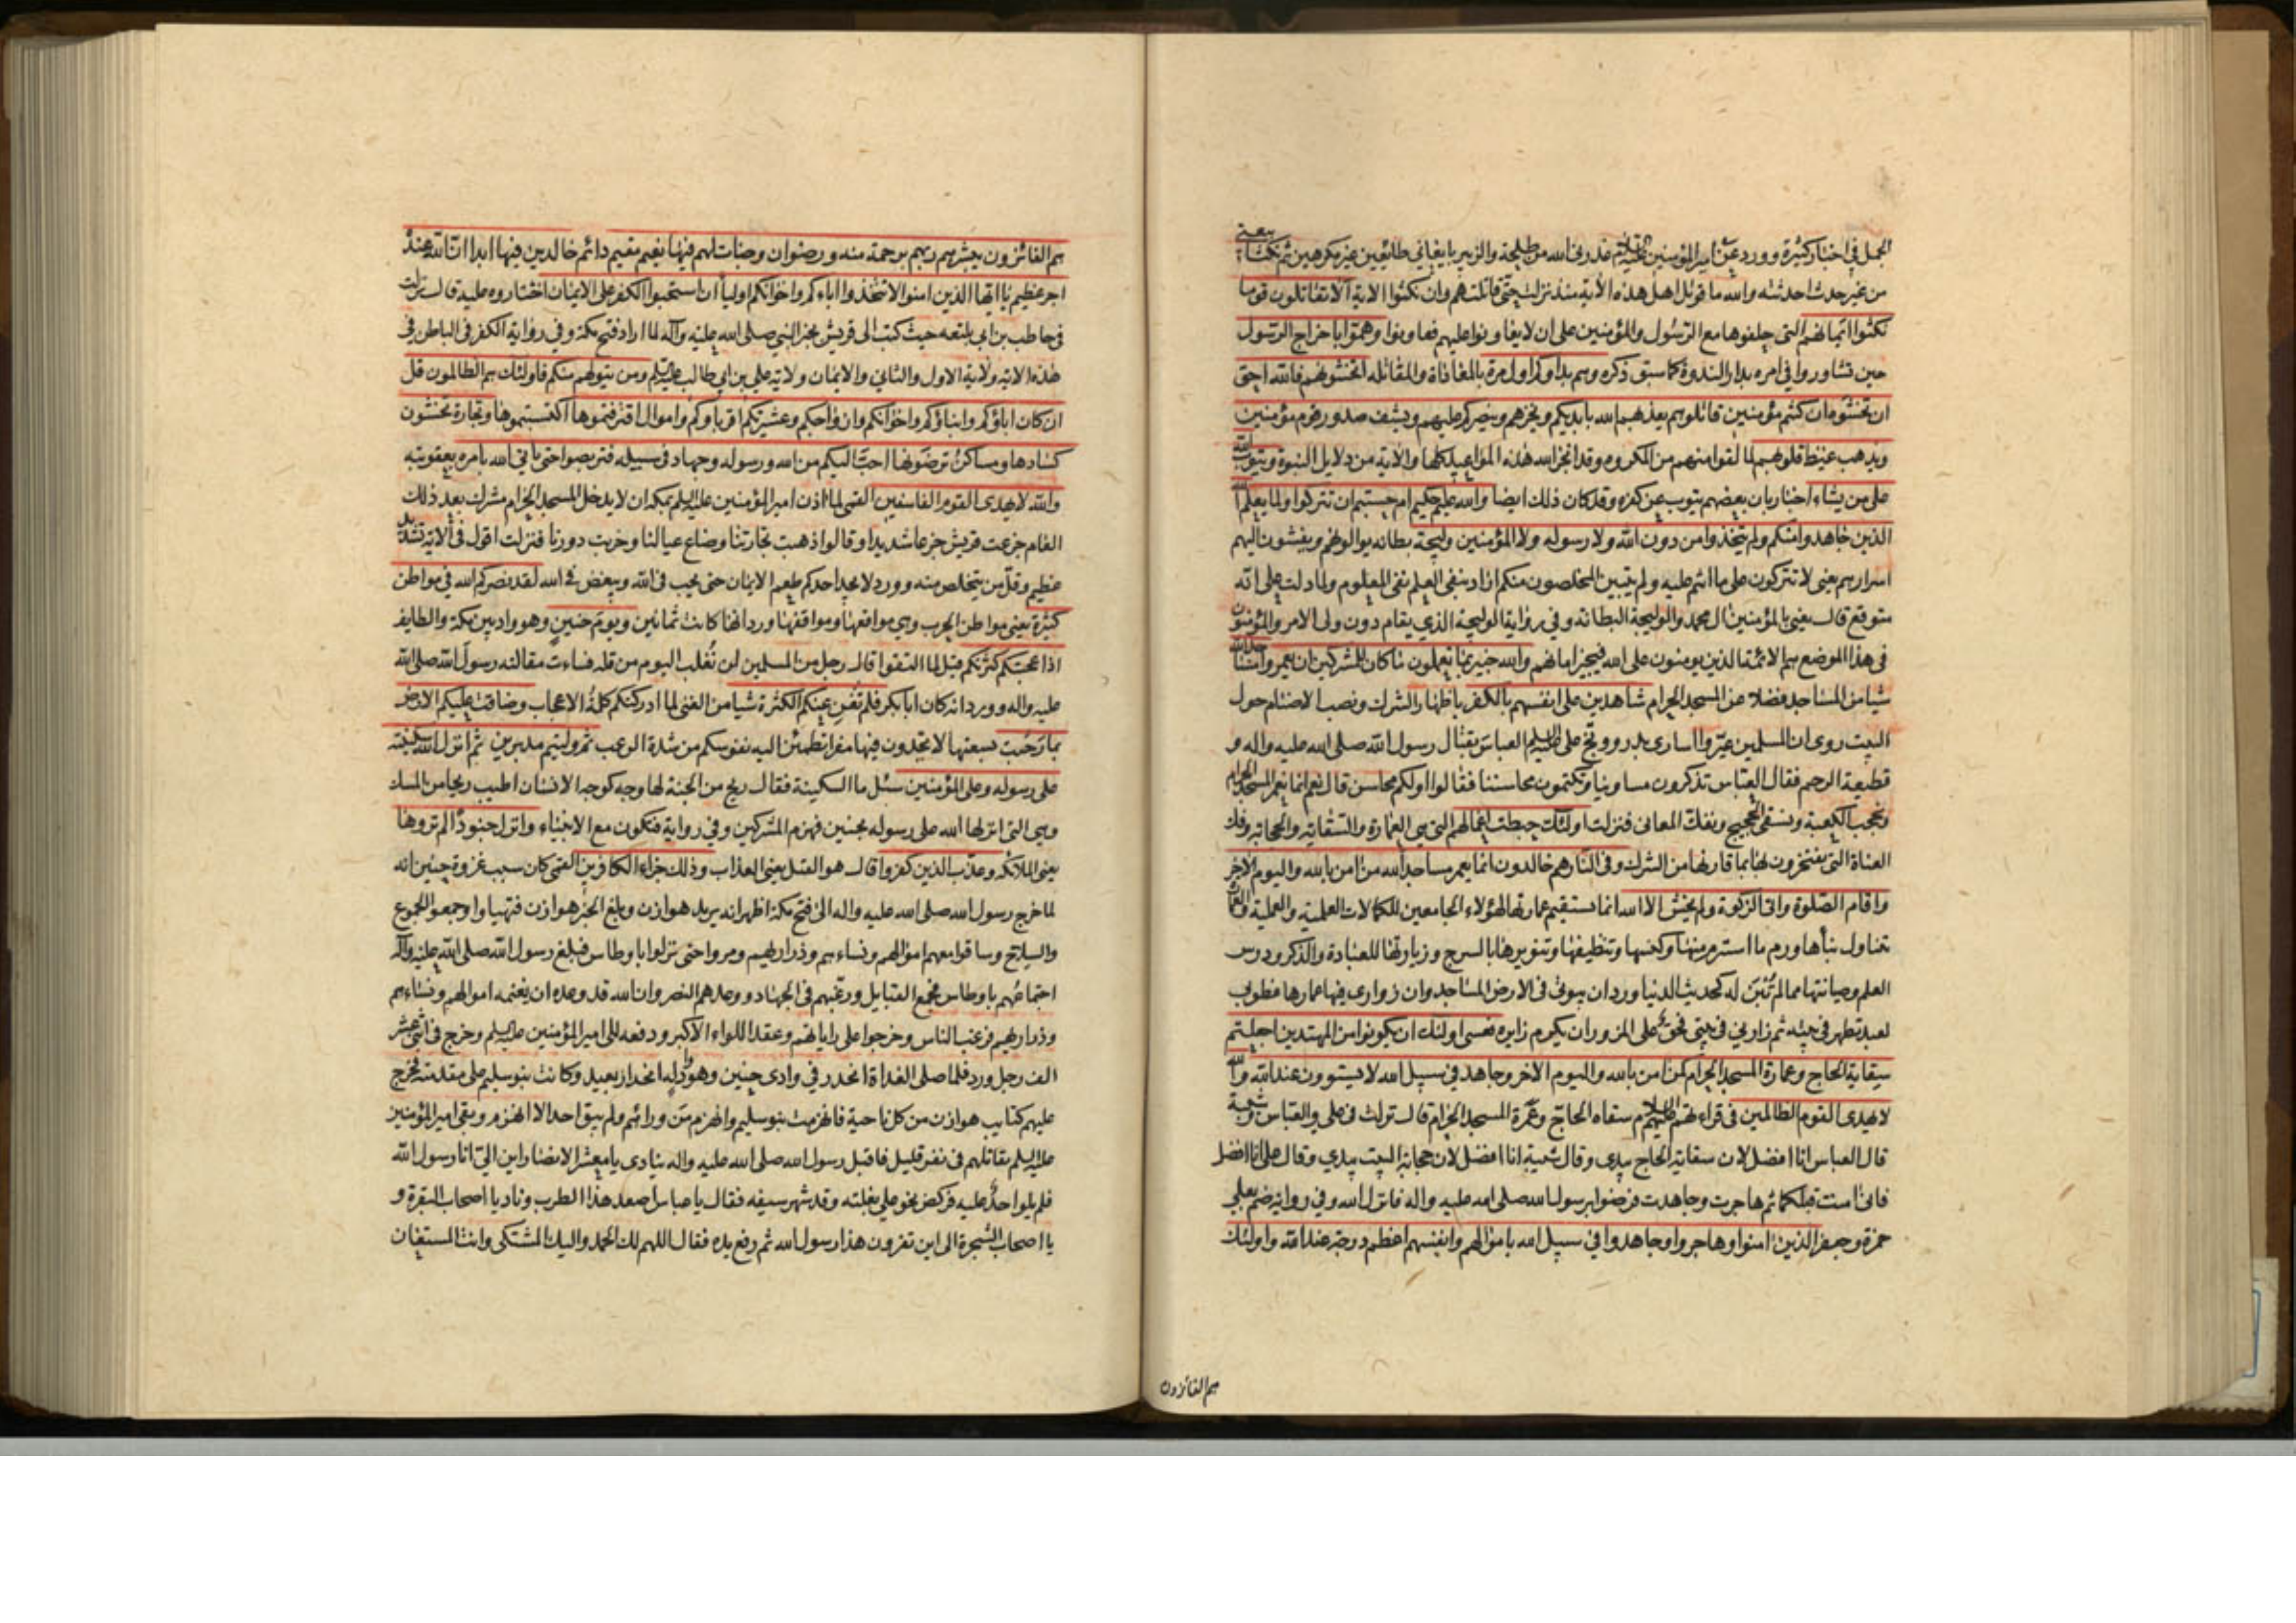 الجمل في اخبار كثيرة وورد عن امير المؤمنين عليه السلام عذرني الله من طلحة والزبير بايعاني طائعين غير مكرهين ثم نكثا بيعتي
من غير حدث احدثته والله ما قوتل اهل هذه الآية منذ نزلت حتى قاتلتهم وان نكثوا الاية الا تقاتلون قوما
نكثوا ايمانهم التي حلفوها مع الرسول والمؤمنين على ان لا يعاونوا عليهم فعاونوا وهموا باخراج الرسول
حين تشاوروا في امره بدار الندوة كما سبق ذكره وهم بداوكم اول مرة بالمعاداة والمقاتلة اتخشونهم فالله احق
ان تخشوه ان كنتم مؤمنين قاتلوهم يعذبهم الله بايديكم ويخزهم وينصركم عليهم ويشف صدور قوم مؤمنين
ويذهب غيظ قلوبهم لما لقوا منهم من المكروه وقد انجز الله هذه المواعيد كلها والآية من دلايل النبوة ويتوب الله
على من يشاء اخبار بان بعضهم يتوب عن كفره وقد كان ذلك ايضا والله عليم حكيم ام حسبتم ان تتركوا ولما يعلم الله
الذين جاهدوا منكم ولم يتخذوا من دون الله ولا رسوله ولا المؤمنين وليجة بطانة يوالونهم ويفشون اليهم
اسرارهم يعني لا تتركون على ما انتم عليه ولم يتبين المخلصون منكم اراد بنفي العلم نفي المعلوم ولما دلت على انه
متوقع قال يعني بالمؤمنين آل محمد والوليجة البطانة وفي رواية الوليجة الذي يقام دون ولي الامر والمؤمنون
في هذا الموضع هم الائمة الذين يومنون على الله فيجيز امانهم والله خبير بما تعملون ما كان للمشركين ان يعمروا مساجد الله
شيا من المساجد فضلا عن المسجد الحرام شاهدين على انفسهم بالكفر باظهار الشرك ونصب الاصنام حول
البيت روى ان المسلمين عيروا اسارى بدر ووبخ علي عليه السلام العباس بقتال رسول الله صلى الله عليه واله و
قطيعة الرحم فقال العباس تذكرون مساوينا وتكتمون محاسننا فقالوا اولكم محاسن قال نعم انا نعمر المسجد الحرام
ونحجب الكعبة ونسقي الحجيج ونفك العاني فنزلت اولئك حبطت اعمالهم التي هي العمارة والسقاية والحجابة وفك
العناة التي يفتخرون بها بما قارنها من الشرك وفي النار هم خالدون انما يعمر مساجد الله من امن بالله واليوم الاخر
واقام الصلوة واتى الزكوة ولم يخش الا الله انما تستقيم عمارتها لهؤلاء الجامعين للكمالات العلمية والعملية والعمارة
تتناول بناها ورم ما استرم منها وكنسها وتنظيفها وتنويرها بالسرج وزيارتها للعبادة والذكر ودرس
العلم وصيانتها مما لم تبن له كحديث الدنيا ورد ان بيوتي في الارض المساجد وان زواري فيها عمارها فطوبى
لعبد تطهر في بيته ثم زارني في بيتي فحق على المزور ان يكرم زايره فعسى اولئك ان يكونوا من المهتدين اجعلتم
سقاية الحاج وعمارة المسجد الحرام كمن امن بالله واليوم الاخر وجاهد في سبيل الله لا يستوون عند الله والله
لا يهدي القوم الظالمين في قراءتهم عليهم السلام سقاه الحاج وعمرة المسجد الحرام قال نزلت في علي والعباس وشيبة
قال العباس انا افضل لان سقاية الحاج بيدي وقال شيبة انا افضل لان حجابة البيت بيدي وقال علي انا افضل
فاني امنت قبلكما ثم هاجرت وجاهدت فرضوا برسول الله صلى الله عليه واله فانزل الله وفي رواية ضم بعلي
حمزة وجعفر الذين امنوا وهاجروا وجاهدوا في سبيل الله باموالهم وانفسهم اعظم درجة عند الله واولئك
هم الفائزون
هم الفائزون يبشرهم ربهم برحمة منه ورضوان وجنات لهم فيها نعيم مقيم دائم خالدين فيها ابدا ان الله عنده
اجر عظيم يا ايها الذين امنوا لا تتخذوا اباءكم واخوانكم اولياء ان استحبوا الكفر على الايمان اختاروه عليه قال نزلت
في حاطب بن ابي بلتعه حيث كتب الى قريش بخبر النبي صلى الله عليه وآله لما اراد فتح مكة وفي رواية الكفر في الباطن في
هذه الاية ولاية الاول والثاني والايمان ولاية علي بن ابي طالب عليه السلم ومن يتولهم منكم فاولئك هم الظالمون قل
ان كان اباؤكم وابناؤكم واخوانكم وازواجكم وعشيرتكم اقرباؤكم واموال اقترفتموها اكتسبتموها وتجارة تخشون
كسادها ومساكن ترضونها احب اليكم من الله ورسوله وجهاد في سبيله فتربصوا حتى ياتي الله بامره بعقوبته
والله لا يهدي القوم الفاسقين القمى لما اذن امير المؤمنين عليه السلم بمكة ان لا يدخل المسجد الحرام مشرك بعد ذلك
العام جزعت قريش جزعا شديدا وقالوا ذهبت تجارتنا وضاع عيالنا وخربت دورنا فنزلت اقول في الاية تشديد
عظيم وقل من يتخلص منه وورد لا يجد احدكم طعم الايمان حتى يحب في الله ويبغض في الله لقد نصركم الله في مواطن
كثيرة يعني مواطن الحرب وهي مواقعها ومواقفها ورد انها كانت ثمانين ويوم حنين وهو واد بين مكة والطايف
اذ اعجبتكم كثرتكم قيل لما التقوا قال رجل من المسلمين لن نغلب اليوم من قلة فساءت مقالته رسول الله صلى الله
عليه واله وورد انه كان ابا بكر فلم تغن عنكم الكثرة شيا من الغنى لما ادركتكم كلمة الاعجاب وضاقت عليكم الارض
بما رحبت بسعتها لا تجدون فيها مفرا تطمئن اليه نفوسكم من شدة الرعب ثم وليتم مدبرين ثم انزل الله سكينته
على رسوله وعلى المؤمنين سئل ما السكينة فقال ريح من الجنة لها وجه كوجه الانسان اطيب ريحا من المسك
وهي التي انزلها الله على رسوله بحنين فهزم المشركين وفي رواية فتكون مع الانبياء وانزل جنودا لم تروها
يعني الملائكة وعذب الذين كفروا قال هو القتل يعني العذاب وذلك جزاء الكافرين القمى كان سبب غزوة حنين انه
لما خرج رسول الله صلى الله عليه واله الى فتح مكة اظهر انه يريد هوازن وبلغ الخبر هوازن فتهياوا وجمعوا الجموع
والسلاح وساقوا معهم اموالهم ونساءهم وذراريهم ومروا حتى نزلوا باوطاس فبلغ رسول الله صلى الله عليه وآله
اجتماعهم باوطاس فجمع القبايل ورغبهم في الجهاد ووعدهم النصر وان الله قد وعده ان يغنمه اموالهم ونساءهم
وذراريهم فرغب الناس وخرجوا على راياتهم وعقد اللواء الاكبر ودفعه الى امير المؤمنين عليه السلم وخرج في اثني عشر
الف رجل ورد فلما صلى الغداة انحدر في وادي حنين وهو واد له انحدار بعيد وكانت بنو سليم على مقدمته فخرج
عليهم كتايب هوازن من كل ناحية فانهزمت بنو سليم وانهزم من ورائهم ولم يبق احد الا انهزم وبقى امير المؤمنين
عليه السلم يقاتلهم في نفر قليل فاقبل رسول الله صلى الله عليه واله ينادي يا معشر الانصار اين الي انا رسول الله
فلم يلو احد عليه فركض نحو علي بغلته وقد شهر سيفه فقال يا عباس اصعد هذا الظرب وناد يا اصحاب البقرة و
يا اصحاب الشجرة الى اين تفرون هذا رسول الله ثم رفع يده فقال اللهم لك الحمد واليك المشتكى وانت المستعان